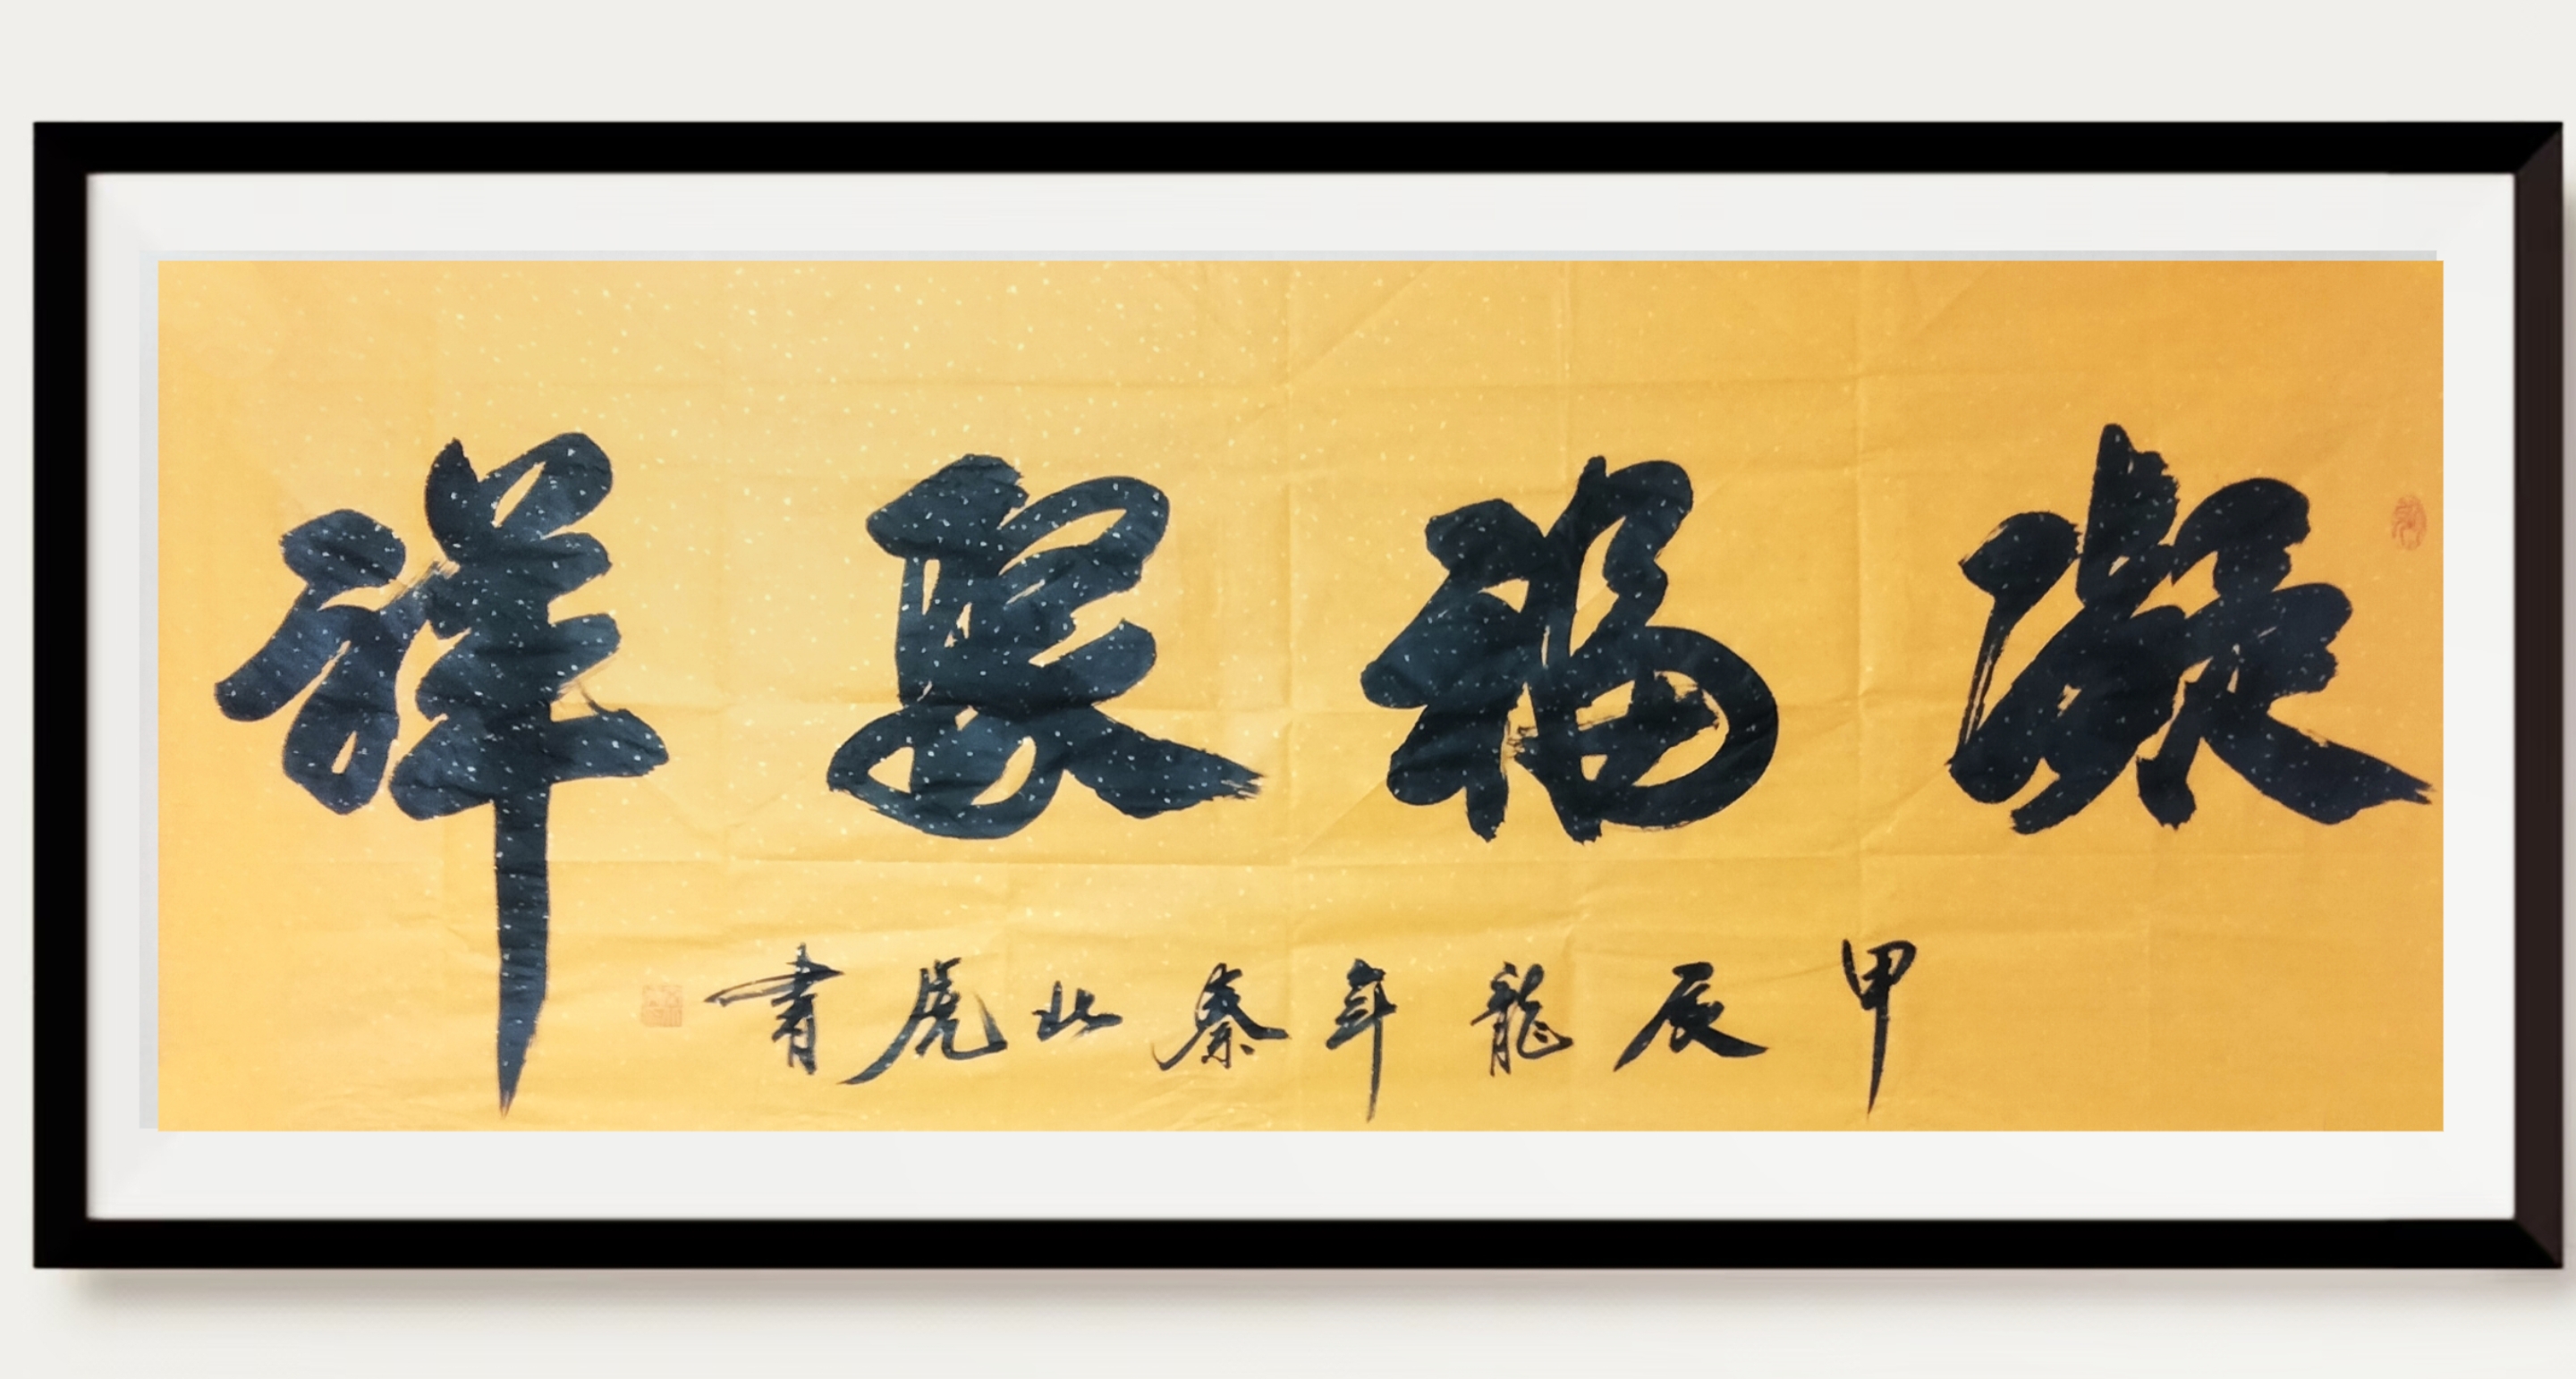 凝福聚祥
甲辰龍年秦北虎書